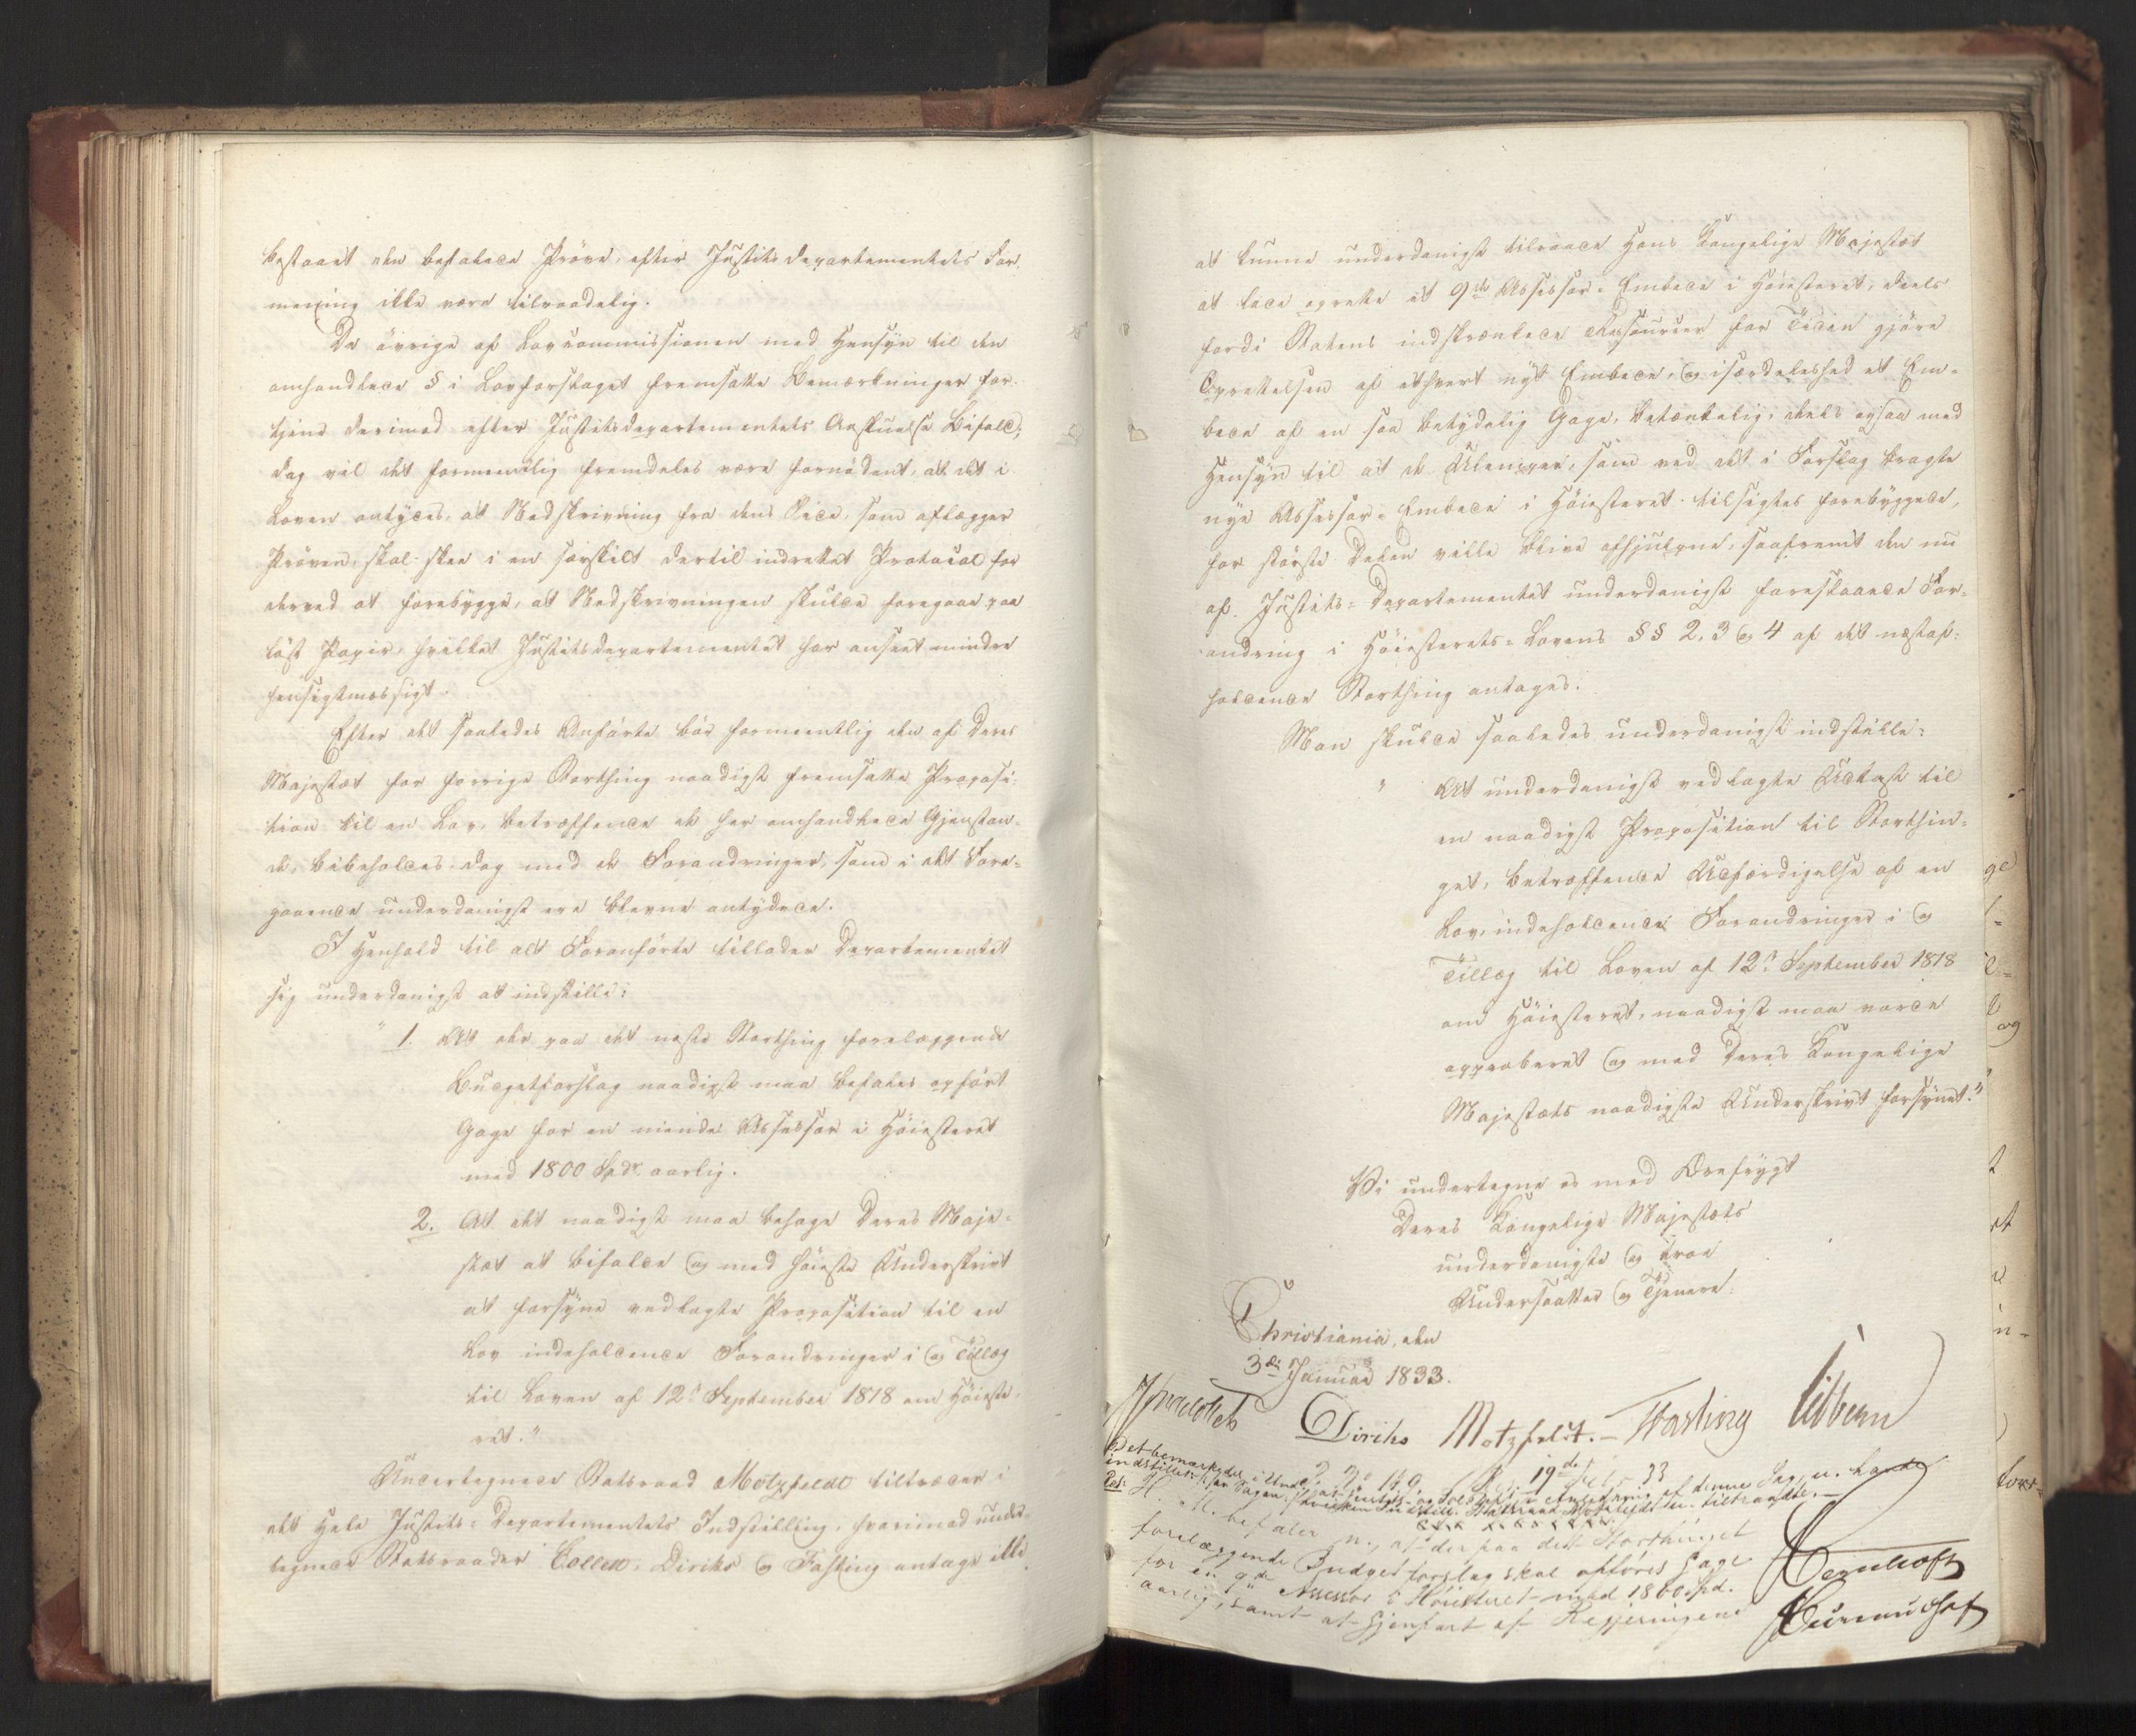 bestaaet den befalede Prøve, efter Justitsdepartementets For-
mening ikke være tilraadelig.
De øvrige af Lovcommissionen med Hensyn til den
omhandlede § i Lovforslaget fremsatte Bemærkninger for-
tjene derimod efter Justitsdepartementets Anskuelse Bifald;
dog vil det formeentlig fremdeles være fornødent, at det i
Loven antydes, at Nedskrivning fra dens Side, som aflægger
Prøven, skal skee i en særskilt dertil indrettet Protocol for
derved at forebygge, at Nedskrivningen skulde foregaae paa
løst Papir, hvilket Justitsdepartementet har anseet mindre
hensigtmæssigt.
Efter det saaledes Anførte bør formeentlig den af Deres
Majestæt for forrige Storthing naadigst fremsatte Proposi-
tion til en Lov, betræffende de her omhandlede Gjenstan-
de, bibeholdes dog med de Forandringer, som i det Fore-
gaaende underdanigst ere blevne antydede.
I Henhold til alt Foranførte tillader Departementet
sig underdanigst at indstille:
" 1. At der paa det næste Storthing forelæggende
Budgetforslag naadigst maa befales opført
Gage for en niende Assessor i Høiesteret
med 1800 Spdr. aarlig.
2. At det naadigst maa behage Deres Maje-
stæt at bifalde og med høieste Underskrivt
at forsyne vedlagte Proposition til en
Lov indeholdende Forandringer i og Tillæg
til Loven af 12te September 1818 om Høieste-
ret."
Undertegnede Statsraad Motzfeldt tiltræder i
det Hele Justits-Departementets Indstilling, hvorimod under-
tegnede Statsraader Collett, Diriks og Fasting antage ikke
at kunne underdanigst tilraade Hans Kongelige Majestæt
at lade oprette et 9de Assessor-Embede i Høiesteret, deels
fordi Statens indskrænkede Ressourcer for Tiden gjøre
Oprettelsen af ethvert nyt Embede, og isærdeleshed et Em-
bede af en saa betydelig Gage, betænkelig, deels ogsaa med
Hensyn til at de Ulemper, som ved det i Forslag bragte
nye Assessor-Embede i Høiesteret tilsigtes forebyggede,
for største Delen ville blive afhjulpne, saafremt den nu
af Justits-Departementet underdanigst foreslaaede For-
andring i Høiesterets-Lovens §§ 2, 3 og 4 af det næstaf-
holdende Storthing antages.
Man skulde saaledes underdanigst indstille:
" At underdanigst vedlagte Udkast til
en naadigst Proposition til Storthin-
get, betræffende Udfærdigelse af en
Lov, indeholdende Forandringer i og
Tillæg til Loven af 12te September 1818
om Høiesteret, naadigst maa vorde
approberet og med Deres Kongelige
Majestæts naadigste Underskrivt forsynet."
Vi undertegne os med Ærefrygt
Deres Kongelige Majestæts
underdanigste og troe
Undersaatter og Tjenere.
Christiania, den
3die Januar 1833.
Collett Diriks Motzfeldt. Fasting Vibe
19de 33
Det bemærkes
indstilles denne Sag
Res: H. M. befaler n., at der paa det Storthinget
forelæggende Budgetforslag skal opføres Gage
for en 9de Assessor i Høiesteret med 1800 Spd.
aarlig, samt at Gjenpart af Regjeringens